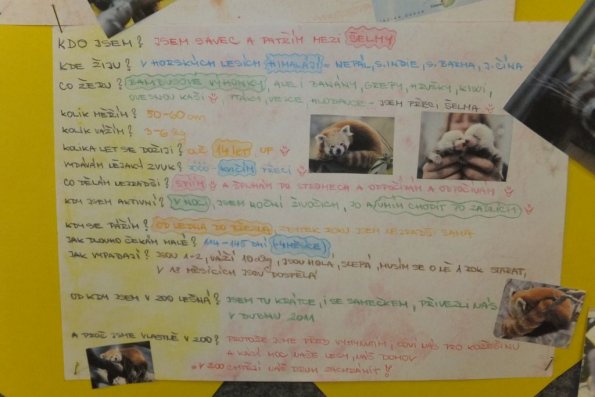 KDO JSEM? JSEM SAVEC A PATŘÍM MEZI ŠELMY
KDE ŽIJU? V HORSKÝCH LESÍCH HIMALÁJÍ - NEPÁL, S.INDIE, S.BARMA, J.ČÍNA
CO ŽERU? BAMBUSOVÉ VÝHONKY, ALE I BANÁNY, GREPY, HRUŠKY, KIWI,
OVESNOU KAŠI PTÁKY, VEJCE HLODAVCE - JSEM PŘECI ŠELMA
KOLIK MĚŘÍM? 50-60 cm
KOLIK VÁŽÍM? 3-6 kg
KOLIKA LET SE DOŽIJI? AŽ 14 LET UF
VYDÁVÁM NĚJAKÝ ZVUK? KVIČÍM PŘECI
CO DĚLÁM NEJRADĚJI? SPÍM A ŠPLHÁM PO STROMECH A ODPOČÍVÁM A ODPOČÍVÁM
KDY JSEM AKTIVNÍ? V NOCI, JSEM NOČNÍ ŽIVOČICH, JO A UMÍM CHODIT PO ZADNÍCH
KDY SE PÁŘÍM? OD LEDNA DO BŘEZNA, ZBYTEK ROKU JSEM NEJRADĚJI SAMA
JAK DLOUHO ČEKÁM MALÉ? 114-145 DNÍ (-4 MĚSÍCE)
JAK VYPADAJÍ? JSOU 1-2, VÁŽÍ JSOU HOLÁ, SLEPÁ, MUSÍM SE O NĚ 1 ROK STARAT,
V 18 MĚSÍCÍCH JSOU DOSPĚLÁ
OD KDY JSEM V ZOO LEŠNÁ? JSEM TU KRÁTCE, I SE SAMEČKEM, PŘIVEZLI NÁS
V DUBNU 2011
A PROČ JSME VLASTNĚ V ZOO? PROTOŽE JSME PŘED VYHYNUTÍM, LOVÍ NÁS PRO KOŽEŠINU
A KÁCÍ MOC NAŠE LESY, NÁŠ DOMOV
V ZOO CHTĚJÍ NÁŠ DRUH ZACHRÁNIT!